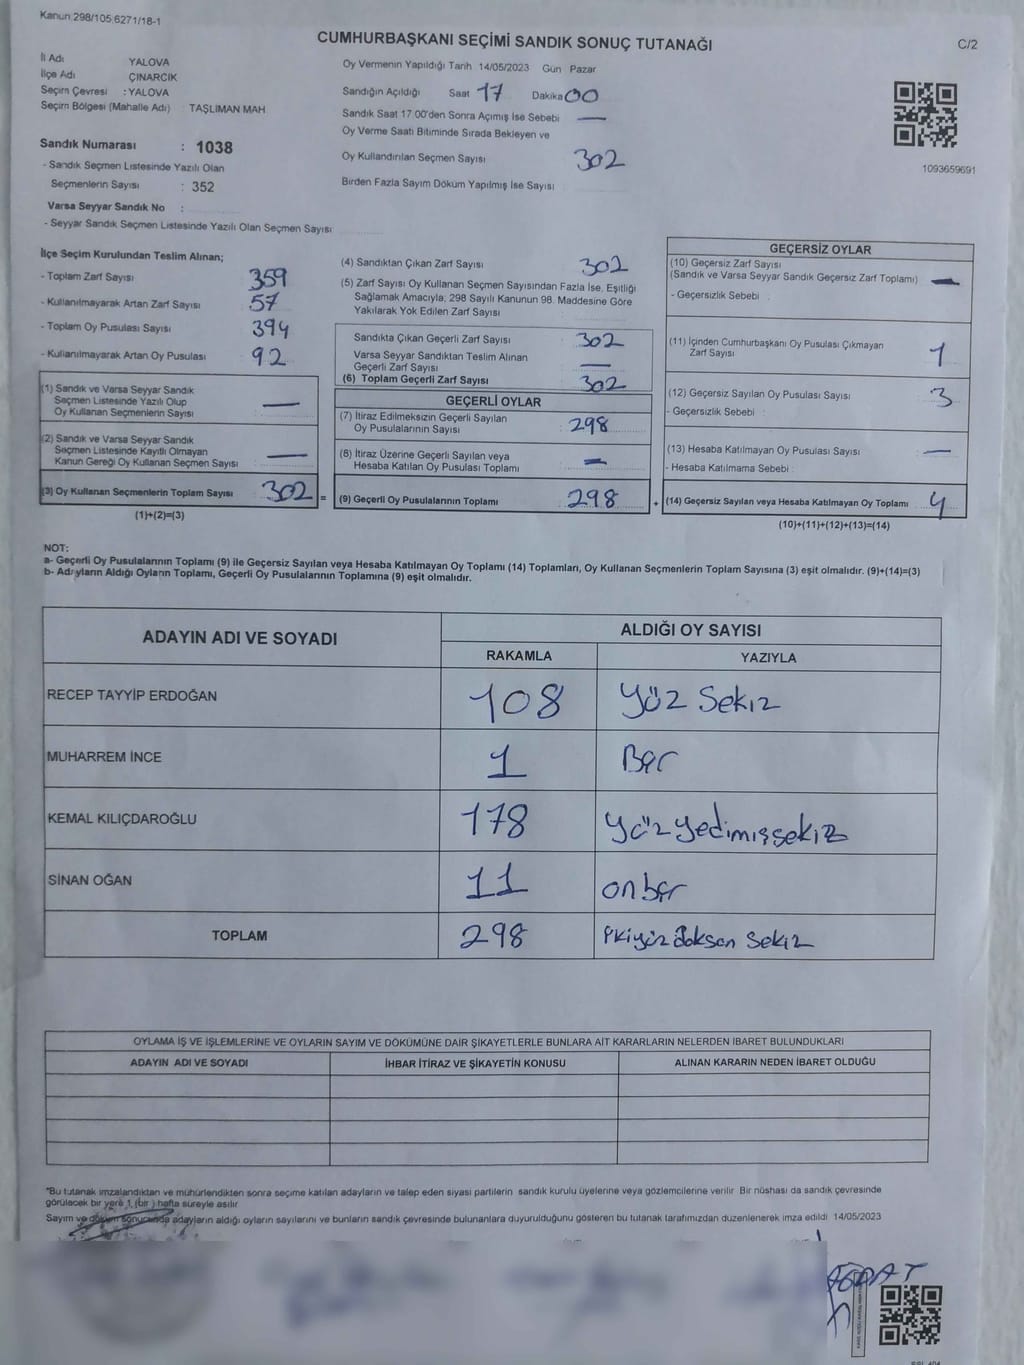 Kanun 298/105 6271/18-1
CUMHURBAŞKANI SEÇİMİ SANDIK SONUÇ TUTANAĞI
C/2
İl Adı YALOVA
İlçe Adı ÇINARCIK
Seçim Çevresi : YALOVA
Seçim Bölgesi (Mahalle Adı) TAŞLIMAN MAH.
Sandık Numarası : 1038
- Sandık Seçmen Listesinde Yazılı Olan
Seçmenlerin Sayısı : 352
Varsa Seyyar Sandık No :
- Seyyar Sandık Seçmen Listesinde Yazılı Olan Seçmen Sayısı
Oy Vermenin Yapıldığı Tarih 14/05/2023 Gün Pazar
Sandığın Açıldığı Saat 17 Dakika 00
Sandık Saat 17.00'den Sonra Açımış İse Sebebi —
Oy Verme Saati Bitiminde Sırada Bekleyen ve
Oy Kullandırılan Seçmen Sayısı 302
Birden Fazla Sayım Döküm Yapılmış İse Sayısı
1093659691
İlçe Seçim Kurulundan Teslim Alınan;
- Toplam Zarf Sayısı 359
- Kullanılmayarak Artan Zarf Sayısı 57
- Toplam Oy Pusulası Sayısı 394
- Kullanılmayarak Artan Oy Pusulası 92
(1) Sandık ve Varsa Seyyar Sandık
Seçmen Listesinde Yazılı Olup
Oy Kullanan Seçmenlerin Sayısı —
(2) Sandık ve Varsa Seyyar Sandık
Seçmen Listesinde Kayıtlı Olmayan
Kanun Gereği Oy Kullanan Seçmen Sayısı —
(3) Oy Kullanan Seçmenlerin Toplam Sayısı 302 =
(1)+(2)=(3)
(4) Sandıktan Çıkan Zarf Sayısı 302
(5) Zarf Sayısı Oy Kullanan Seçmen Sayısından Fazla İse, Eşitliği
Sağlamak Amacıyla; 298 Sayılı Kanunun 98. Maddesine Göre
Yakılarak Yok Edilen Zarf Sayısı
Sandıkta Çıkan Geçerli Zarf Sayısı 302
Varsa Seyyar Sandıktan Teslim Alınan
Geçerli Zarf Sayısı —
(6) Toplam Geçerli Zarf Sayısı 302
GEÇERLİ OYLAR
(7) İtiraz Edilmeksizin Geçerli Sayılan
Oy Pusulalarının Sayısı 298
(8) İtiraz Üzerine Geçerli Sayılan veya
Hesaba Katılan Oy Pusulası Toplamı —
(9) Geçerli Oy Pusulalarının Toplamı 298 +
GEÇERSİZ OYLAR
(10) Geçersiz Zarf Sayısı
(Sandık ve Varsa Seyyar Sandık Geçersiz Zarf Toplamı) —
- Geçersizlik Sebebi :
(11) İçinden Cumhurbaşkanı Oy Pusulası Çıkmayan
Zarf Sayısı 1
(12) Geçersiz Sayılan Oy Pusulası Sayısı 3
- Geçersizlik Sebebi :
(13) Hesaba Katılmayan Oy Pusulası Sayısı —
- Hesaba Katılmama Sebebi :
(14) Geçersiz Sayılan veya Hesaba Katılmayan Oy Toplamı 4
(10)+(11)+(12)+(13)=(14)
NOT:
a- Geçerli Oy Pusulalarının Toplamı (9) ile Geçersiz Sayılan veya Hesaba Katılmayan Oy Toplamı (14) Toplamları, Oy Kullanan Seçmenlerin Toplam Sayısına (3) eşit olmalıdır. (9)+(14)=(3)
b- Adayların Aldığı Oyların Toplamı, Geçerli Oy Pusulalarının Toplamına (9) eşit olmalıdır.
ADAYIN ADI VE SOYADI
ALDIĞI OY SAYISI
RAKAMLA YAZIYLA
RECEP TAYYİP ERDOĞAN 108 Yüz Sekiz
MUHARREM İNCE 1 Bir
KEMAL KILIÇDAROĞLU 178 yüzyedimişsekiz
SİNAN OĞAN 11 onbir
TOPLAM 298 ikiyüz doksan sekiz
OYLAMA İŞ VE İŞLEMLERİNE VE OYLARIN SAYIM VE DÖKÜMÜNE DAİR ŞİKAYETLERLE BUNLARA AİT KARARLARIN NELERDEN İBARET BULUNDUKLARI
ADAYIN ADI VE SOYADI İHBAR İTİRAZ VE ŞİKAYETİN KONUSU ALINAN KARARIN NEDEN İBARET OLDUĞU
*Bu tutanak imzalandıktan ve mühürlendikten sonra seçime katılan adayların ve talep eden siyasi partilerin sandık kurulu üyelerine veya gözlemcilerine verilir Bir nüshası da sandık çevresinde
görülecek bir yere 1 (bir) hafta süreyle asılır
Sayım ve döküm sonucunda adayların aldığı oyların sayılarını ve bunların sandık çevresinde bulunanlara duyurulduğunu gösteren bu tutanak tarafımızdan düzenlenerek imza edildi 14/05/2023